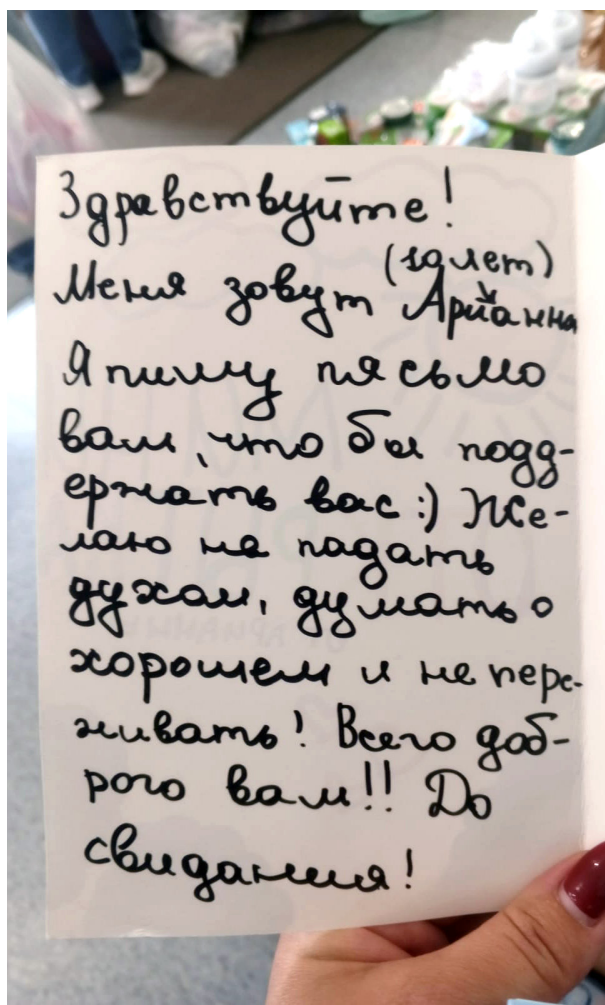 Здравствуйте!
(10 лет)
Меня зовут Арианна
Я пишу пясьмо
вам, что бы подд-
ержать вас :) Же-
лаю не падать
духом, думать о
хорошем и не пере-
живать! Всего доб-
рого вам!! До
свидания!